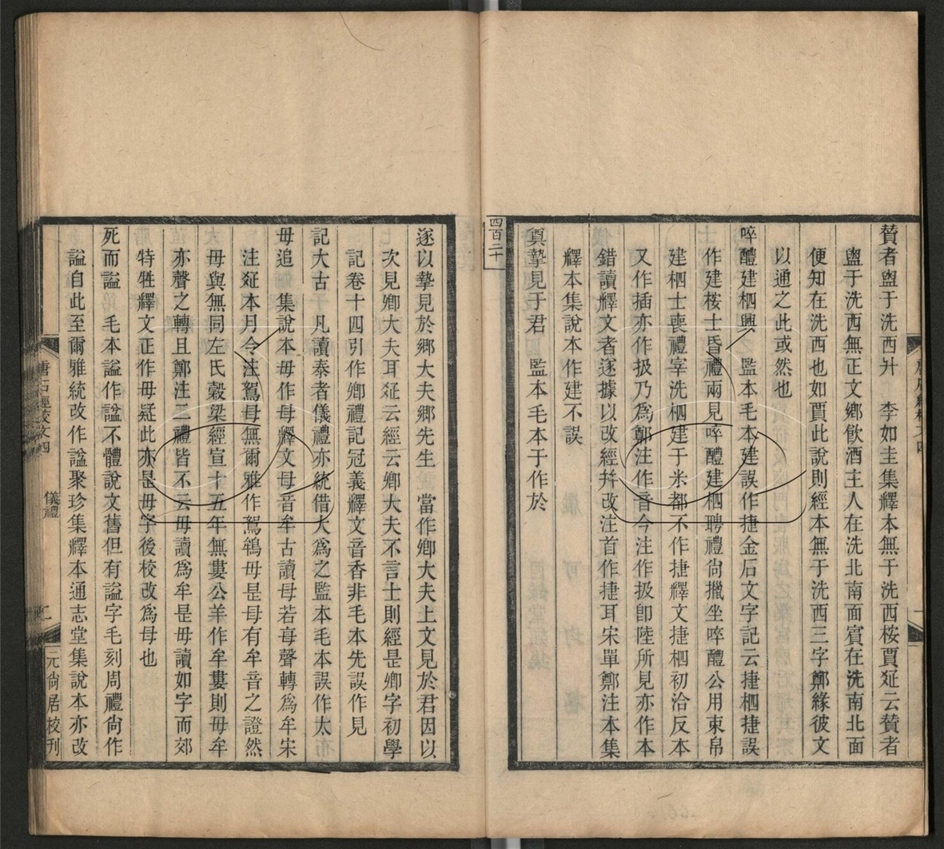 贊者盥于洗西廾　李如圭集釋本無于洗西桉賈㢟云贊者
盥于洗西無正文鄉飲酒主人在洗北南面賓在洗南北面
便知在洗西也如賈此說則經本無于洗西三字鄭緣彼文
以通之此或然也
啐醴建柶興　監本毛本建誤作捷金石文字記云捷柶捷誤
作建桉士昏禮兩見啐醴建柶聘禮尙擸坐啐醴公用束帛
建柶士喪禮宰洗柶建于米都不作捷釋文捷柶初洽反本
又作插亦作扱乃爲鄭注作音今注作扱卽陸所見亦作本
錯讀釋文者遂據以改經幷改注首作捷耳宋單鄭注本集
釋本集說本作建不誤
奠摯見于君　監本毛本于作於
四百二十
遂以摯見於鄉大夫鄉先生　當作卿大夫上文見於君因以
次見卿大夫耳㢟云經云卿大夫不言士則經是卿字初學
記卷十四引作卿禮記冠義釋文音香非毛本先誤作見
記大古　凡讀泰者儀禮亦統借大爲之監本毛本誤作太
毋追　集說本毋作母釋文毋音牟古讀毋若每聲轉爲牟宋
注㢟本月令注駕母無爾雅作鴽鴾毋是母有牟音之證然
毋與無同左氏穀梁經宣十五年無婁公羊作牟婁則毋牟
亦聲之轉且鄭注二禮皆不云毋讀爲牟是毋讀如字而郊
特牲釋文正作毋疑此亦是毋字後校改爲母也
死而謚　毛本謚作諡不體說文舊但有謚字毛刻周禮尙作
謚自此至爾雅統改作諡聚珍集釋本通志堂集說本亦改
唐石經校文四
儀禮
二
元尙居校刊